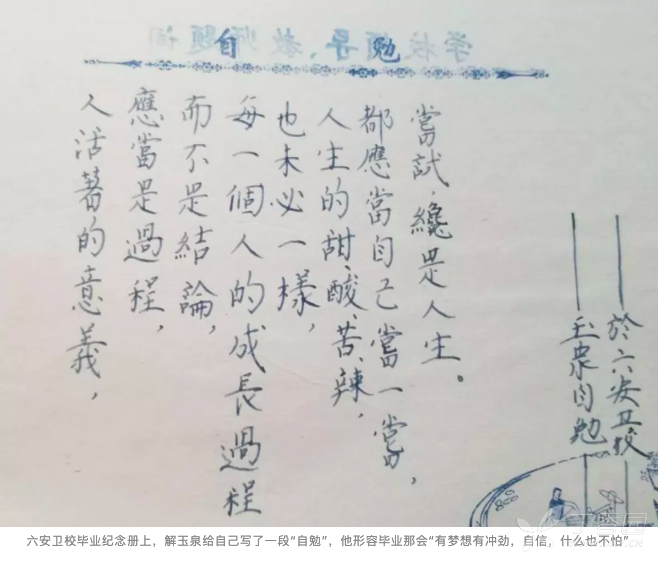 自勉
人活著的意義，
應當是過程，
而不是結論，
每一個人的成長過程
也未必一樣，
人生的甜、酸、苦、辣，
都應當自己嘗一嘗，
嘗試，纔是人生。
玉泉自勉
於六安卫校
丁香园
六安卫校毕业纪念册上，解玉泉给自己写了一段“自勉”，他形容毕业那会“有梦想有冲劲，自信，什么也不怕”